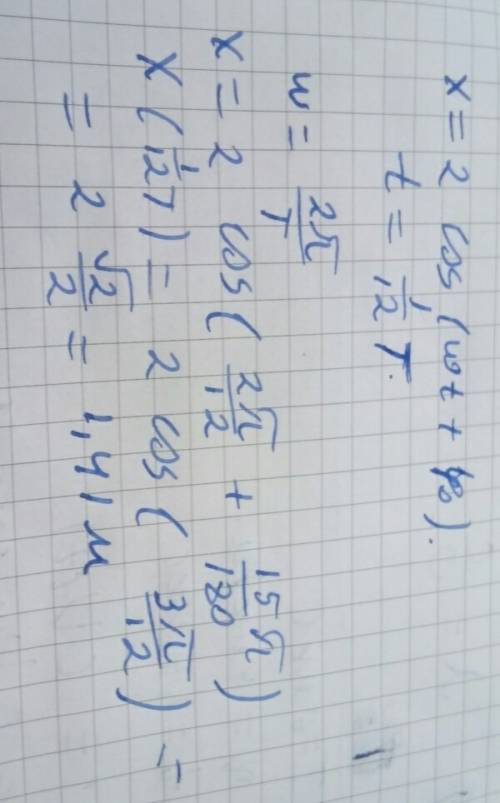 x = 2 cos(ωt + φ₀).
t = 1/12 T.
ω = 2π/T
x = 2 cos(2π/12 + 15π/180)
x(1/12 T) = 2 cos(3π/12) =
= 2 √2/2 = 1,41 м